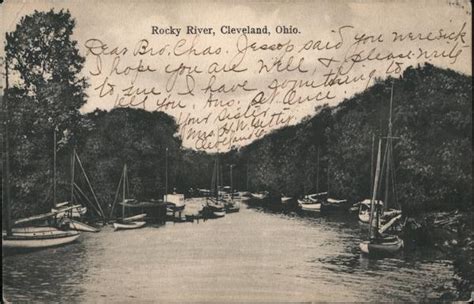 Rocky River, Cleveland, Ohio.
Dear Bro. Chas. Jessop said you were sick
I hope you are well & please write
to me I have something to
tell you, Ans. at Once
Your Sister
Mrs. H. W.
Cleveland O